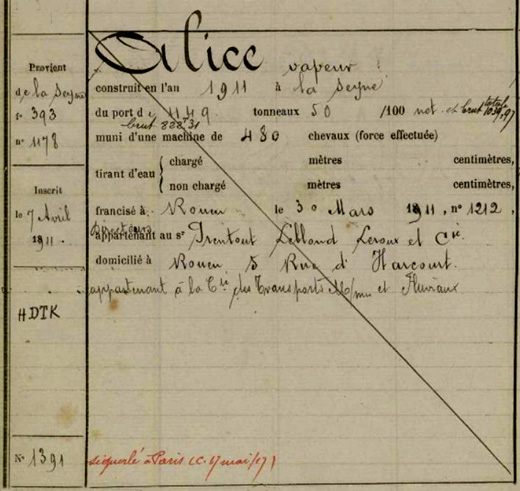 Alice vapeur
Provient
de la Seyne
f° 393
n° 1178
construit en l'an 1911 à la Seyne
du port de 1149 tonneaux 50 /100 net et brut
brut 828 31
muni d'une machine de 480 chevaux (force effectuée)
tirant d'eau { chargé mètres centimètres,
non chargé mètres centimètres,
Inscrit
le 7 Avril
1911.
francisé à Rouen le 30 Mars 1911, n° 1212,
Directeurs
appartenant au sr Trentout Leblond Leroux et Cie
domicilié à Rouen, 5 Rue d'Harcourt.
appartenant à la Cie des Transports Mmes et Fluviaux
HDTK
N° 1391
signalé à Paris (C. 17 mai/17)